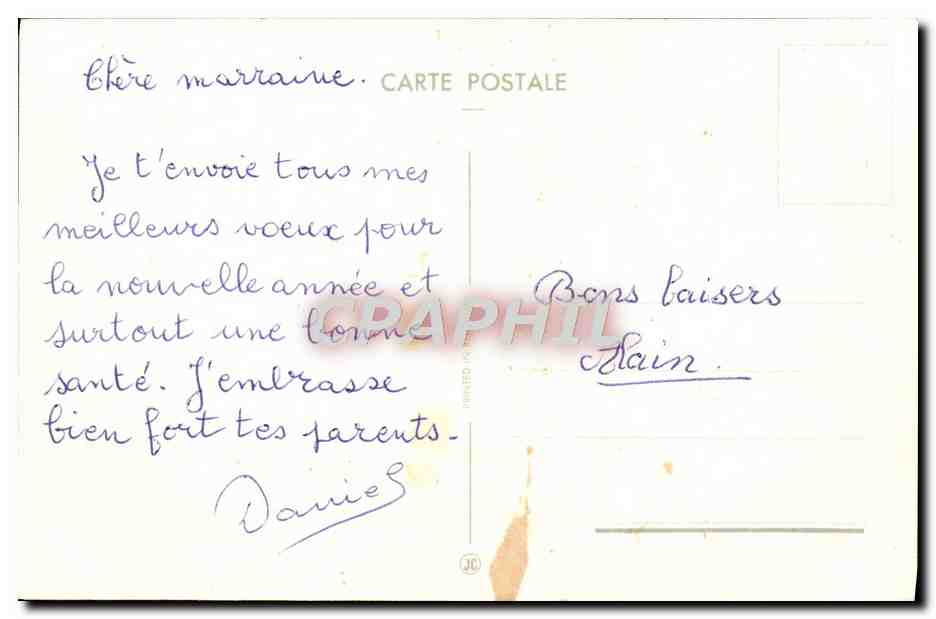 Chère marraine.
CARTE POSTALE
Je t'envoie tous mes
meilleurs voeux pour
la nouvelle année et
surtout une bonne
santé. J'embrasse
bien fort tes parents.
Daniel
Bons baisers
Alain.
CRAPHIL
PRINTED IN
JC